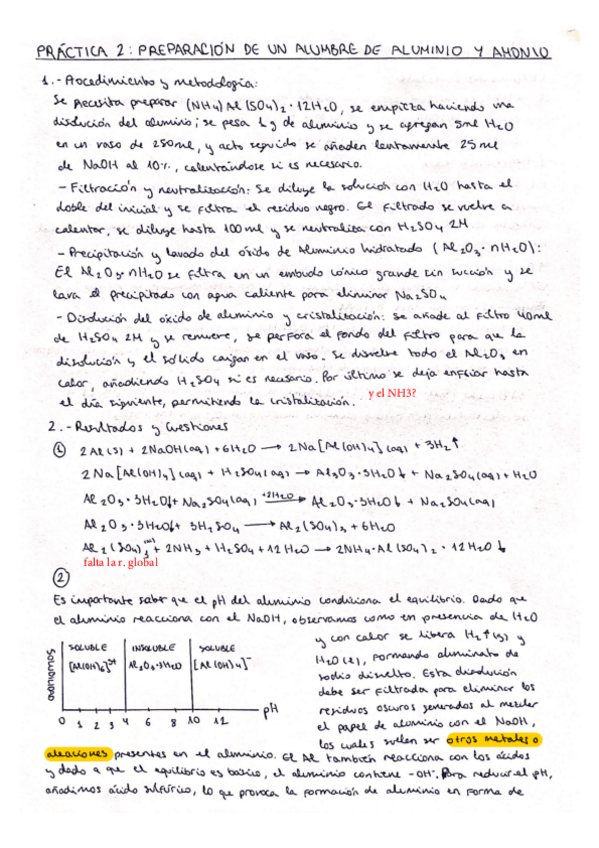 PRÁCTICA 2: PREPARACIÓN DE UN ALUMBRE DE ALUMINIO Y AMONIO
1.- Procedimiento y metodología:
Se necesita preparar (NH4) Al (SO4)2 · 12H2O, se empieza haciendo una
disolución del aluminio; se pesa 1 g de aluminio y se agregan 5ml H2O
en un vaso de 250ml, y acto seguido se añaden lentamente 25 ml
de NaOH al 10%, calentándose si es necesario.
- Filtración y neutralización: Se diluye la solución con H2O hasta el
doble del inicial y se filtra el residuo negro. El filtrado se vuelve a
calentar, se diluye hasta 100 ml y se neutraliza con H2SO4 2M
- Precipitación y lavado del óxido de Aluminio hidratado (Al2O3 · nH2O):
El Al2O3 · nH2O se filtra en un embudo cónico grande sin succión y se
lava el precipitado con agua caliente para eliminar Na2SO4
- Disolución del óxido de aluminio y cristalización: Se añade al filtro 40ml
de H2SO4 2M y se remueve, se perfora el fondo del filtro para que la
disolución y el sólido caigan en el vaso. Se disuelve todo el Al2O3 en
calor, añadiendo H2SO4 si es necesario. Por último se deja enfriar hasta
el día siguiente, permitiendo la cristalización. y el NH3?
2.- Resultados y Cuestiones
① 2Al(s) + 2NaOH(aq) + 6H2O → 2Na[Al(OH)4](aq) + 3H2↑
2Na[Al(OH)4](aq) + H2SO4(aq) → Al2O3·3H2O↓ + Na2SO4(aq) + H2O
Al2O3·3H2O↓ + Na2SO4(aq) +2H2O → Al2O3·3H2O↓ + Na2SO4(aq)
Al2O3·3H2O↓ + 3H2SO4 → Al2(SO4)3 + 6H2O
Al2(SO4)3 + 2NH3 + H2SO4 + 12H2O → 2NH4·Al(SO4)2 · 12H2O↓
falta la r. global
②
Es importante saber que el pH del aluminio condiciona el equilibrio. Dado que
el aluminio reacciona con el NaOH, observamos como en presencia de H2O
y con calor se libera H2↑(g) y
H2O(l), formando aluminato de
sodio disuelto. Esta disolución
debe ser filtrada para eliminar los
residuos oscuros generados al mezclar
el papel de aluminio con el NaOH,
los cuales suelen ser otros metales o
SOLUBLE INSOLUBLE SOLUBLE
[Al(OH)6]3+ Al2O3·3H2O [Al(OH)4]-
0 1 2 3 4 6 8 10 12 pH
aleaciones presentes en el aluminio. El Al también reacciona con los ácidos
y dado a que el equilibrio es básico, el aluminio contiene -OH-. Para reducir el pH,
añadimos ácido sulfúrico, lo que provoca la formación de aluminio en forma de